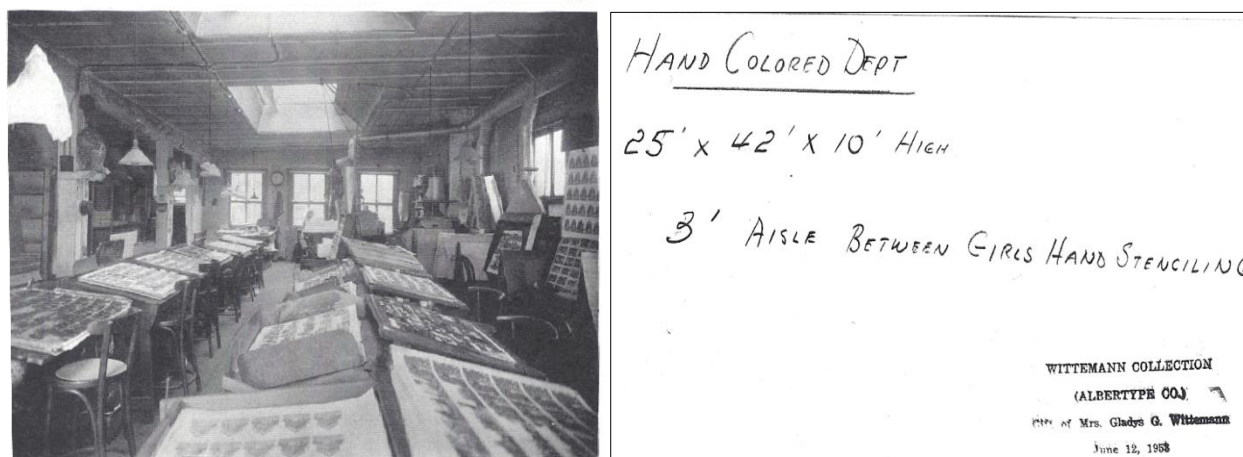 HAND COLORED DEPT
25' x 42' x 10' HIGH
3' AISLE BETWEEN GIRLS HAND STENCILING
WITTEMANN COLLECTION
(ALBERTYPE CO.)
of Mrs. Gladys G. Wittemann
June 12, 1953